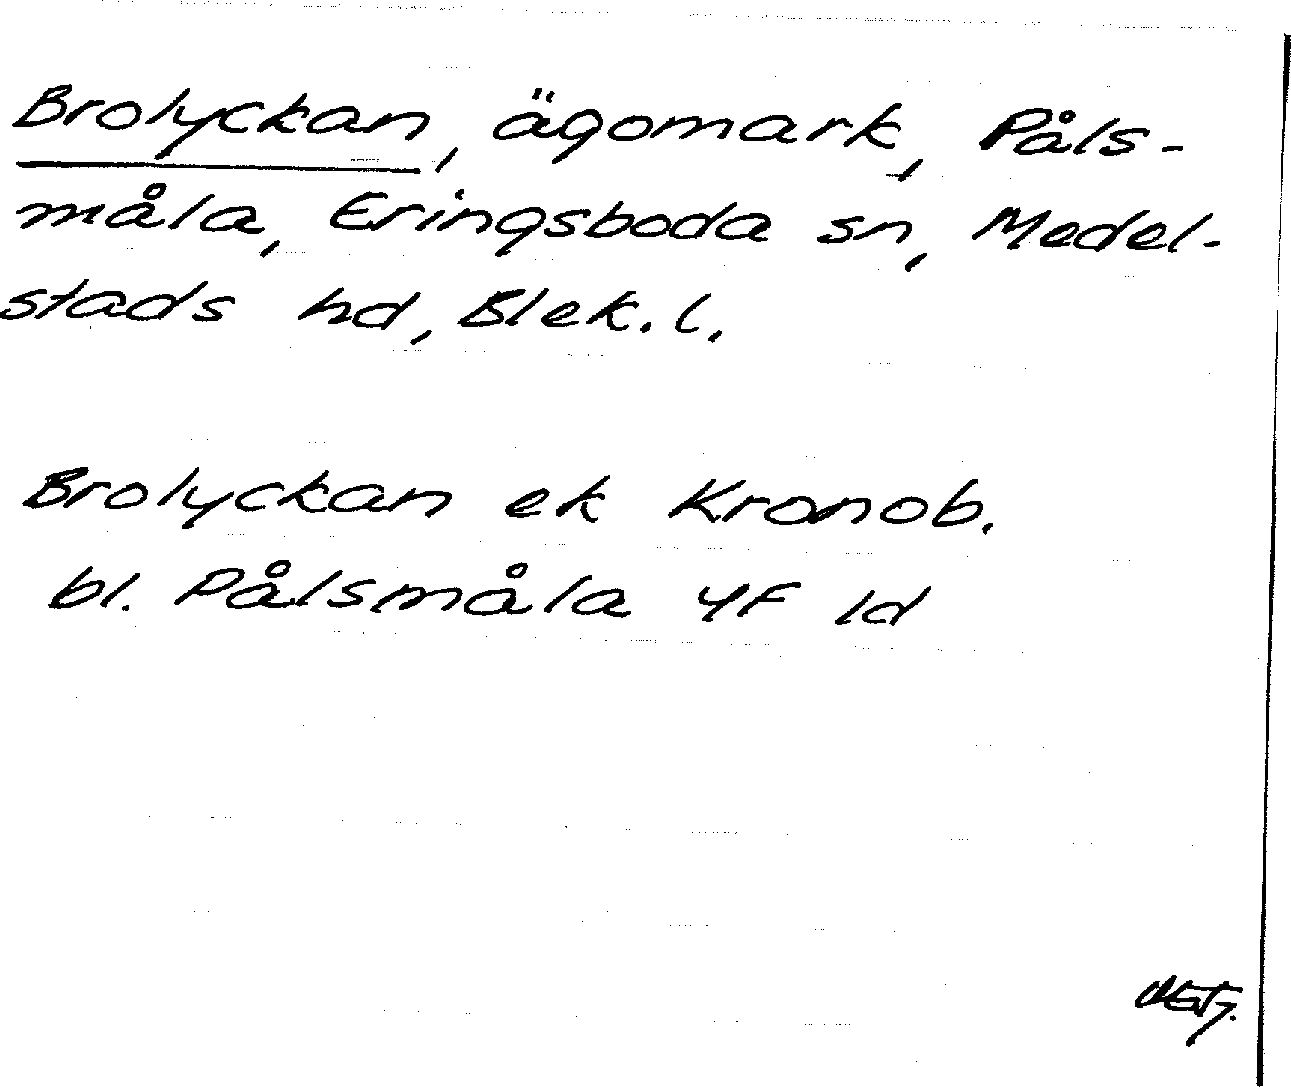 Brolyckan, ägomark, Påls-
måla, Eringsboda sn, Medel-
stads hd, Blek. l.
Brolyckan ek Kronob.
bl. Pålsmåla 4F ld